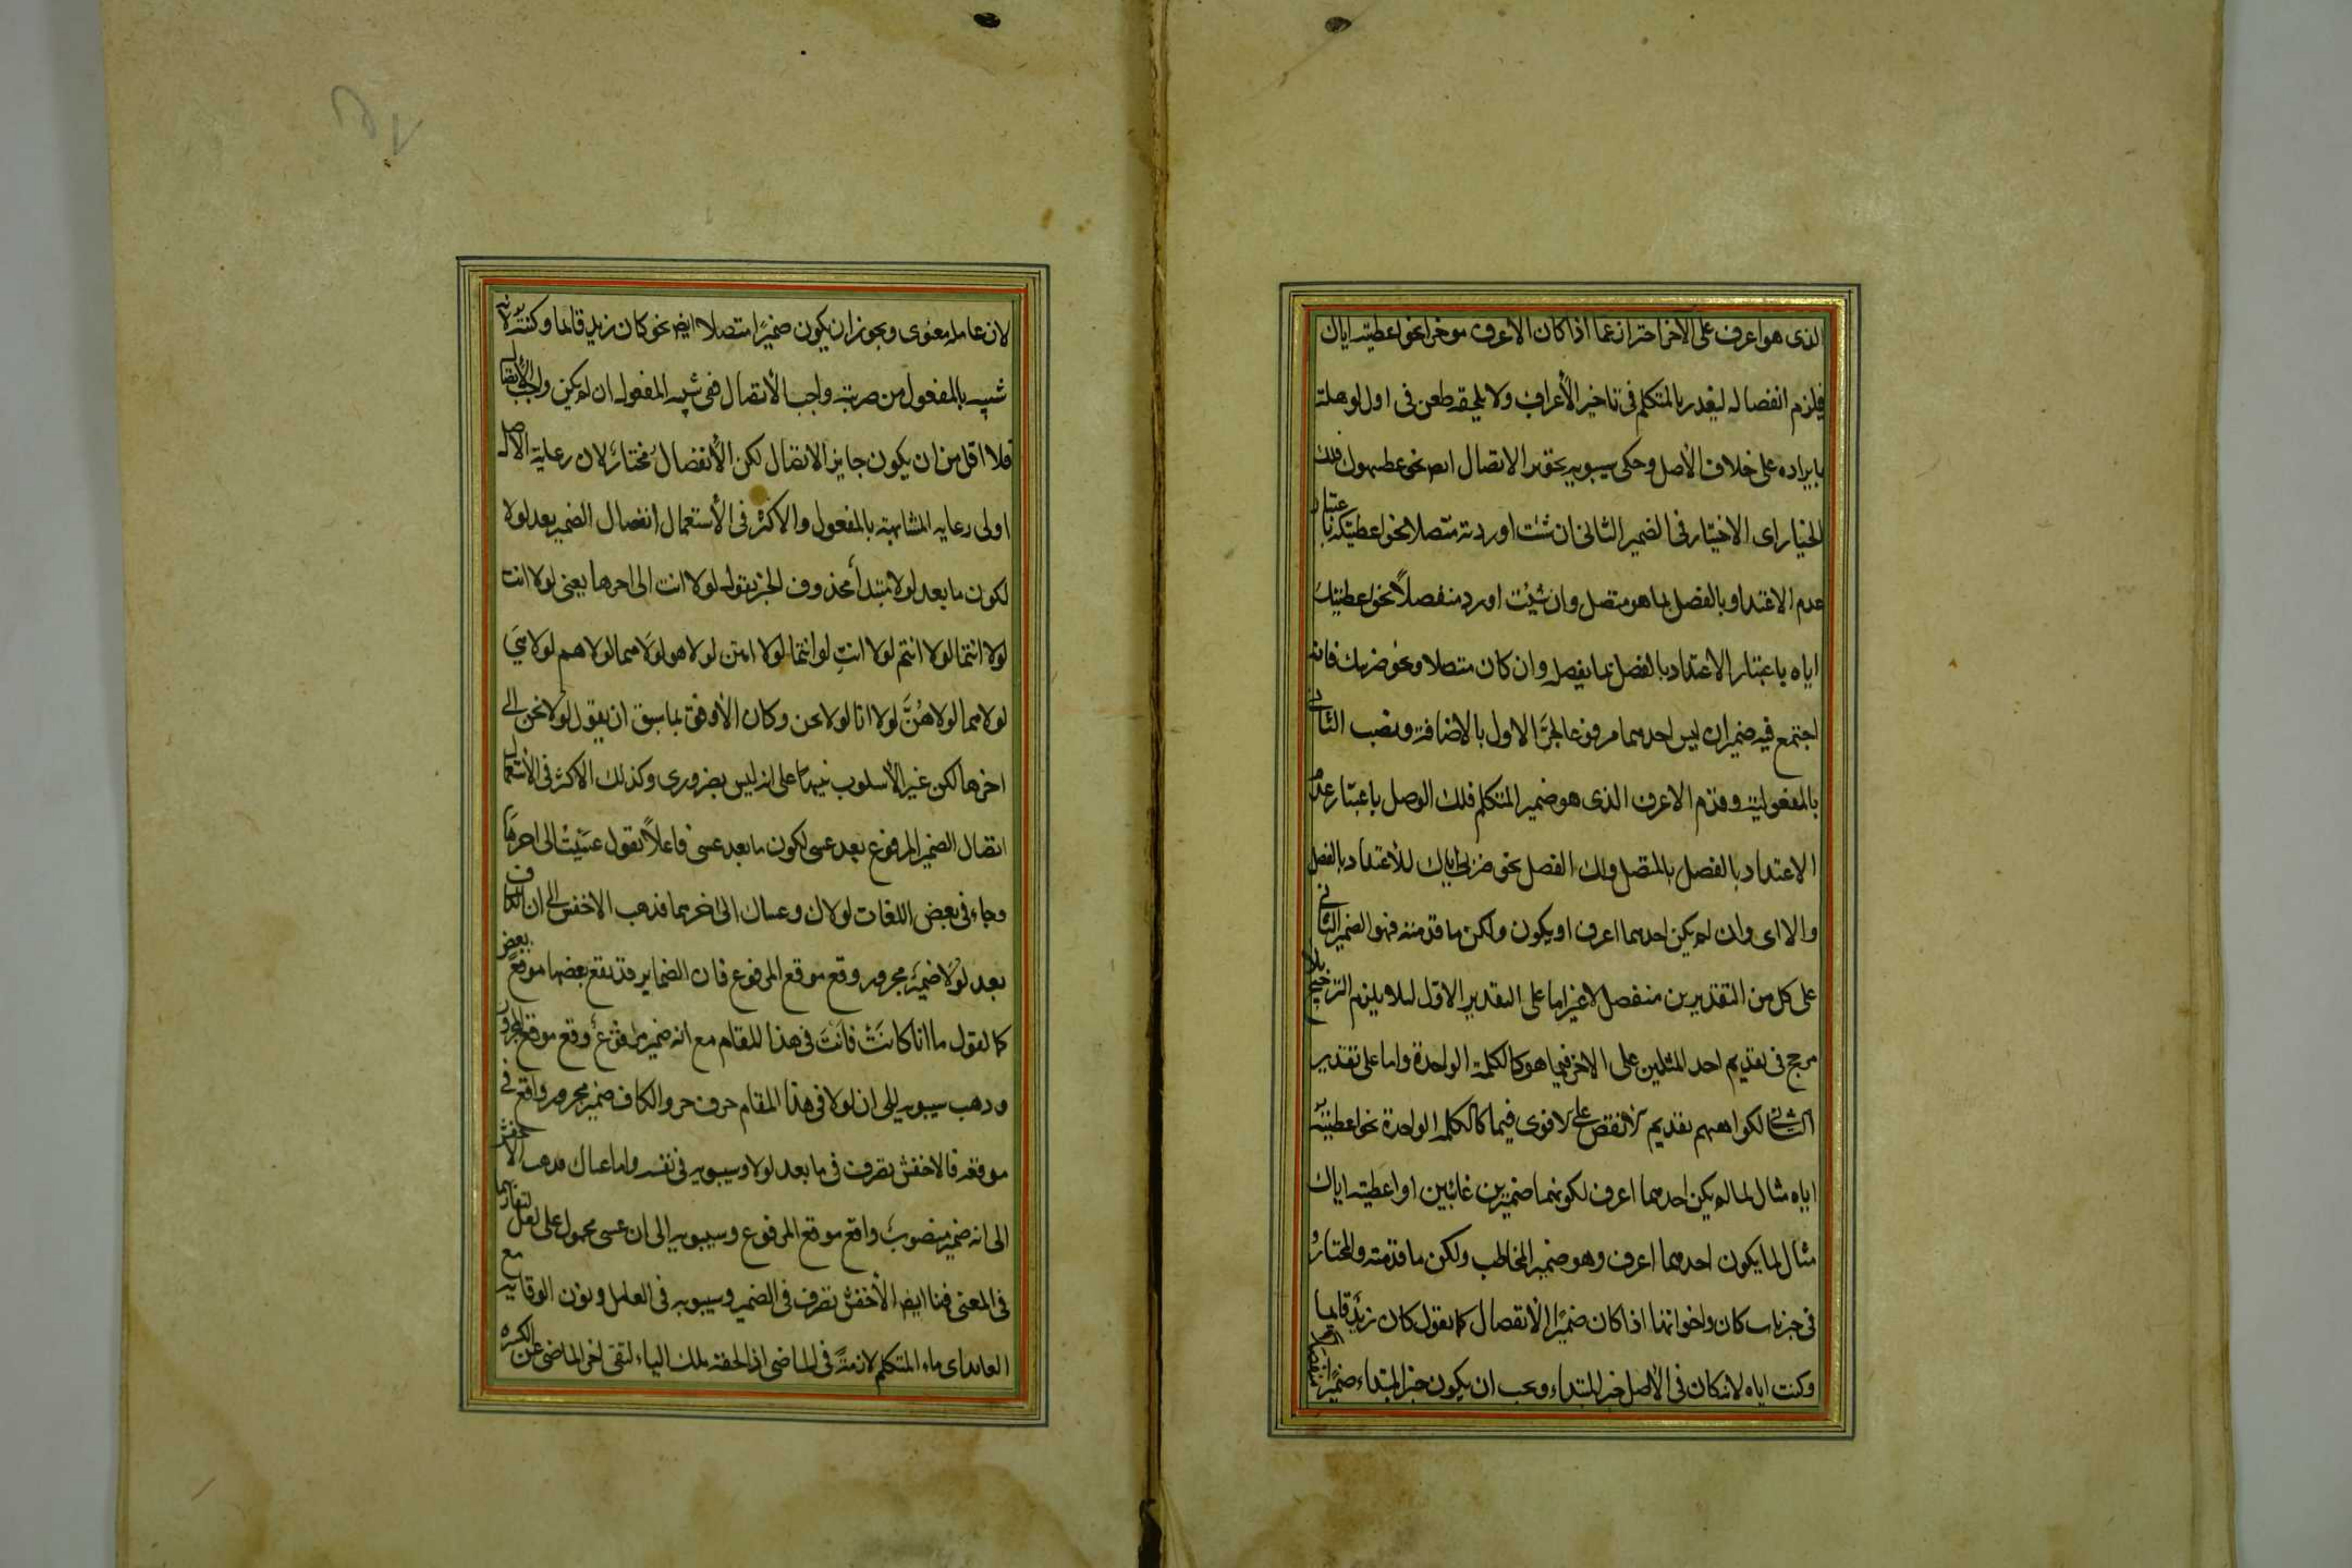 الذى هو اعرف على الاخر احترازعما اذا كان الأعرف موخرا نحو اعطيته اياك
فيلزم انفصاله ليعذر بالمتكلم فى تاخير الأعراف ولا يلحقه طعن فى اول لوهلة
بايراده على خلاف الأصل وحكى سيبويه تجويز الاتصال ايض نحو اعطيهوك فلك
الخيار اى الاختيار فى الضمير الثانى ان شئت اوردته متصلا نحو اعطيتكه باعتبار
عدم الاعتداد بالفصل بما هو متصل وان شئت اورد منفصلاً نحو اعطيتك
اياه باعتبار الاعتداد بالفصل بما يفصل وان كان متصلا ونحو ضربيك فانه
اجتمع فيه ضميران ليس احدهما مرفوعا لجرّ الاول بالاضافة ونصب الثانى
بالمفعولية وقدم الاعرف الذى هو ضمير المتكلم فلك الوصل باعتبار عدم
الاعتداد بالفصل بالمتصل ولك الفصل نحو ضربى اياك للأعتداد بالفصل
والا اى وان لم يكن احدهما اعرف او يكون ولكن ما قدمته فهو الضمير الثانى
على كل من التقديرين منفصل لاغير اما على التقدير الاول لئلا يلزم الترجيح بلا
مرجح فى تقديم احد المثلين على الاخر فيما هو كالكلمة الواحدة واما على تقدير
الثانى لكراهيهم تقديم الانقص على الاقوى فيما كالكلمه الواحدة نحو اعطيته
اياه مثال لما لم يكن احدهما اعرف لكونهما ضميرين غائبين او اعطيته اياك
مثال لما يكون احدهما اعرف وهو ضمير المخاطب ولكن ما قدمته والمختار
فى خبر باب كان واخواتها اذا كان ضميرًا الأنفصال كما تقول كان زيد قايما
وكنت اياه لانه كان فى الأصل خبر المبتداء ويجب ان يكون خبر المبتداء ضميرًا منفصلا
لان عامله معنوى ويجوز ان يكون ضميرًا متصلا ايض نحو كان زيد قائما وكنته لانه
شبيه بالمفعول من ضربته واجب الأتصال ففى شبه المفعول ان لم يكن واجب الأتصال
فلا اقل من ان يكون جايز الاتصال لكن الأنفصال مختار لان رعاية الاصل
اولى رعايه المشابهته بالمفعول والاكثر فى الأستعمال انفصال الضمير بعد لولا
لكون ما بعد لولا مبتدأ محذوف الخبر تقول لولا انت الى اخرها يعنى لولا انت
لولا انتما لولا انتم لولا انتِ لو انتما لولا انتن لولا هو لولا هما لولا هم لولا هي
لولا هما لولا هُنَّ لولا انا لولا نحن وكان الأوفق بما سبق ان يقول لولا نحن الى
اخرها لكن غير الأسلوب تنبيها على انه ليس بضرورى وكذلك الاكثر فى الأستعمال
اتصال الضمير المرفوع بعد عسى لكون ما بعد عسى فاعلاً تقول عسيتُ الى اخرها
وجاء فى بعض اللغات لولاك وعساك الى اخرهما فذهب الاخفش الى ان الكاف
بعد لولا ضمير مجرور وقع موقع المرفوع فان الضماير قد تقع بعضها موقع بعض
كما تقول ما انا كانت فانت فى هذا المقام مع انه ضمير مرفوع وقع موقع المجرور
وذهب سيبويه الى ان لولا فى هذا المقام حرف جر والكاف ضمير مجرور واقع فى
موقعه فالاخفش تصرف فى ما بعد لولا وسيبويه فى نفسه واما عساك فذهب الاخفش
الى انه ضمير منصوب واقع موقع المرفوع وسيبويه الى ان عسى محمول على لعل لتقاربهما
فى المعنى فهنا ايض الأخفش تصرف فى الضمير وسيبويه فى العامل ونون الوقاية مع
الياء اى ياء المتكلم لازمة فى الماضى اذ الحقته تلك الياء لتقى اخر الماضى عن الكسره